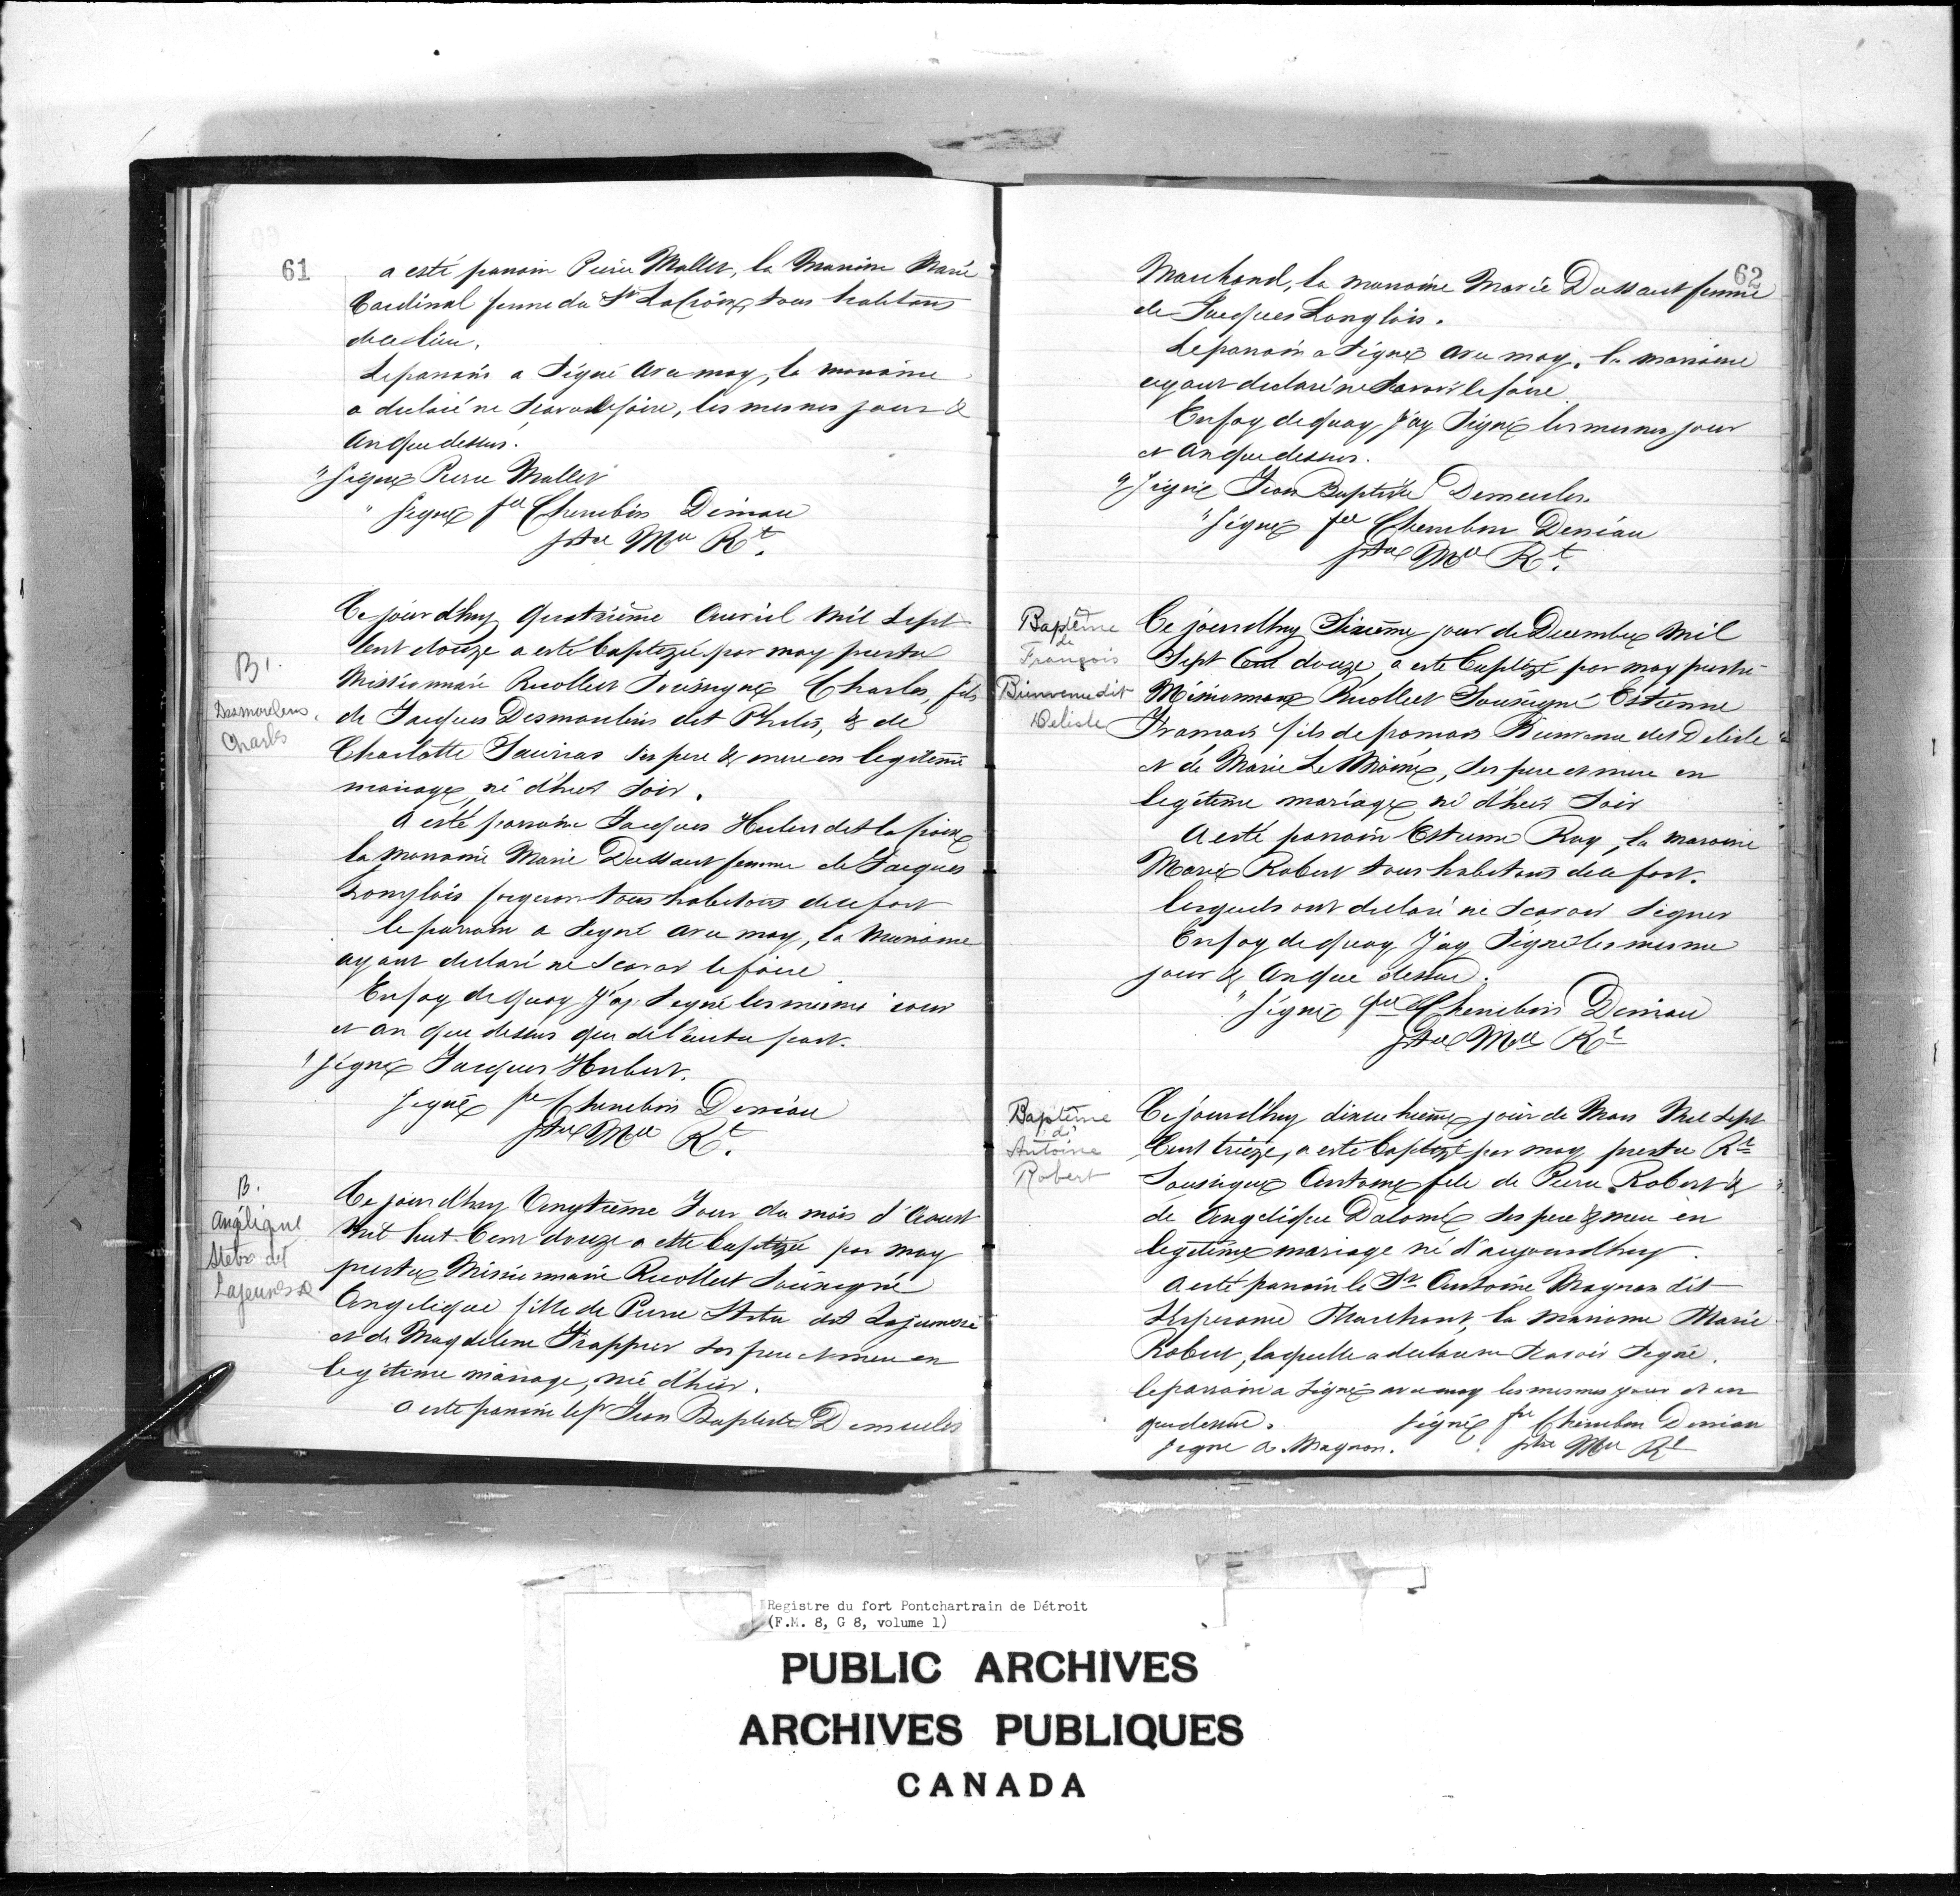 61
a esté parain Pierre Mallet, la Maraine Marie
Cardinal femme du Sr LaCroix, tous habitans
de ce lieu.
Le parain a signé avec moy, la maraine
a declaré ne scavoir le faire, les mesmes jour &
an que dessus.
" signé Pierre Mallet
" signé fre Cherubin Deniau
ptre Mre Rt.
B.
Desmoulins.
Charles
Ce jour d'huy quatrième Avril mil Sept
Cent douze a esté baptizé par moy prestre
Missionnaire Recollect soussigné Charles, fils
de Jacques Desmoulins dit Philis, & de
Charlotte Sauvias ses pere & mere en legitime
mariage, né d'hier soir.
a esté parrain Jacques Hubert dit la Croix
la maraine Marie Dussaut femme de Jacques
Langlois forgeron tous habitans de ce fort
le parrain a signé avec moy, la maraine
ayant declaré ne scavoir le faire
En foy de quoy J'ay signé les mesmes jour
et an que dessus que de l'autre part.
" signé Jacques Hubert.
signé fre Cherubin Deniau
ptre Mre Rt.
B.
Angélique
Stebre dit
Lajeunesse
Ce jour d'huy Vingtième Jour du mois d'Aoust
Mil huit Cent douze a este baptizée par moy
prestre Missionnaire Recollect soussigné
Angelique fille de Pierre Stebre dit Lajeunesse
et de Magdelene Frappier ses pere et mere en
legitime mariage, née d'hier.
a esté parain le sr Jean Baptiste Demeules
62
Marchand, la maraine Marie Dussaut femme
de Jacques Langlois.
Le parain a signé avec moy, la marraine
ayant declaré ne scavoir le faire
En foy de quoy, j'ay signé les mesmes jour
et an que dessus.
" signé Jean Baptiste Demeules.
" signé fre Cherubin Deniau
ptre Mre Rt.
Baptême
de
François
Bienvenu dit
Delisle
Ce jourdhuy Sixième jour de Decembre Mil
Sept Cent douze, a esté baptizé par moy prestre
Missionnaire Recollect Soussigné Estienne
François fils de françois Bienvenu dit Delisle
et de Marie Le Moine, ses pere et mere en
legitime mariage né d'hier soir
a esté parrain Estienne Roy, la maraine
Marie Robert tous habitans de ce fort.
lesquels ont declaré ne scavoir signer
En foy de quoy J'ay signé les mesme
jour & an que dessus.
" signé fre Cherubin Deniau
ptre Mre Rt
Baptême
de
Antoine
Robert
Ce jourd'huy dixneufième jour de Mars Mil Sept
Cent treize, a esté baptizé par moy prestre Rt
Soussigné Antoine fils de Pierre Robert &
de Angelique Dalomé ses pere & mere en
legitime mariage né d'aujourdhuy.
a esté parain le Sr Antoine Magnan dit
Lesperance Marchant, la maraine Marie
Robert, laquelle a declaré ne scavoir signé.
le parrain a signé avec moy les mesmes jour et an
que dessus. signé fre Cherubin Deniau
signé A. Magnan. ptre Mre Rt
Registre du fort Pontchartrain de Détroit
(F.M. 8, G 8, volume 1)
PUBLIC ARCHIVES
ARCHIVES PUBLIQUES
CANADA